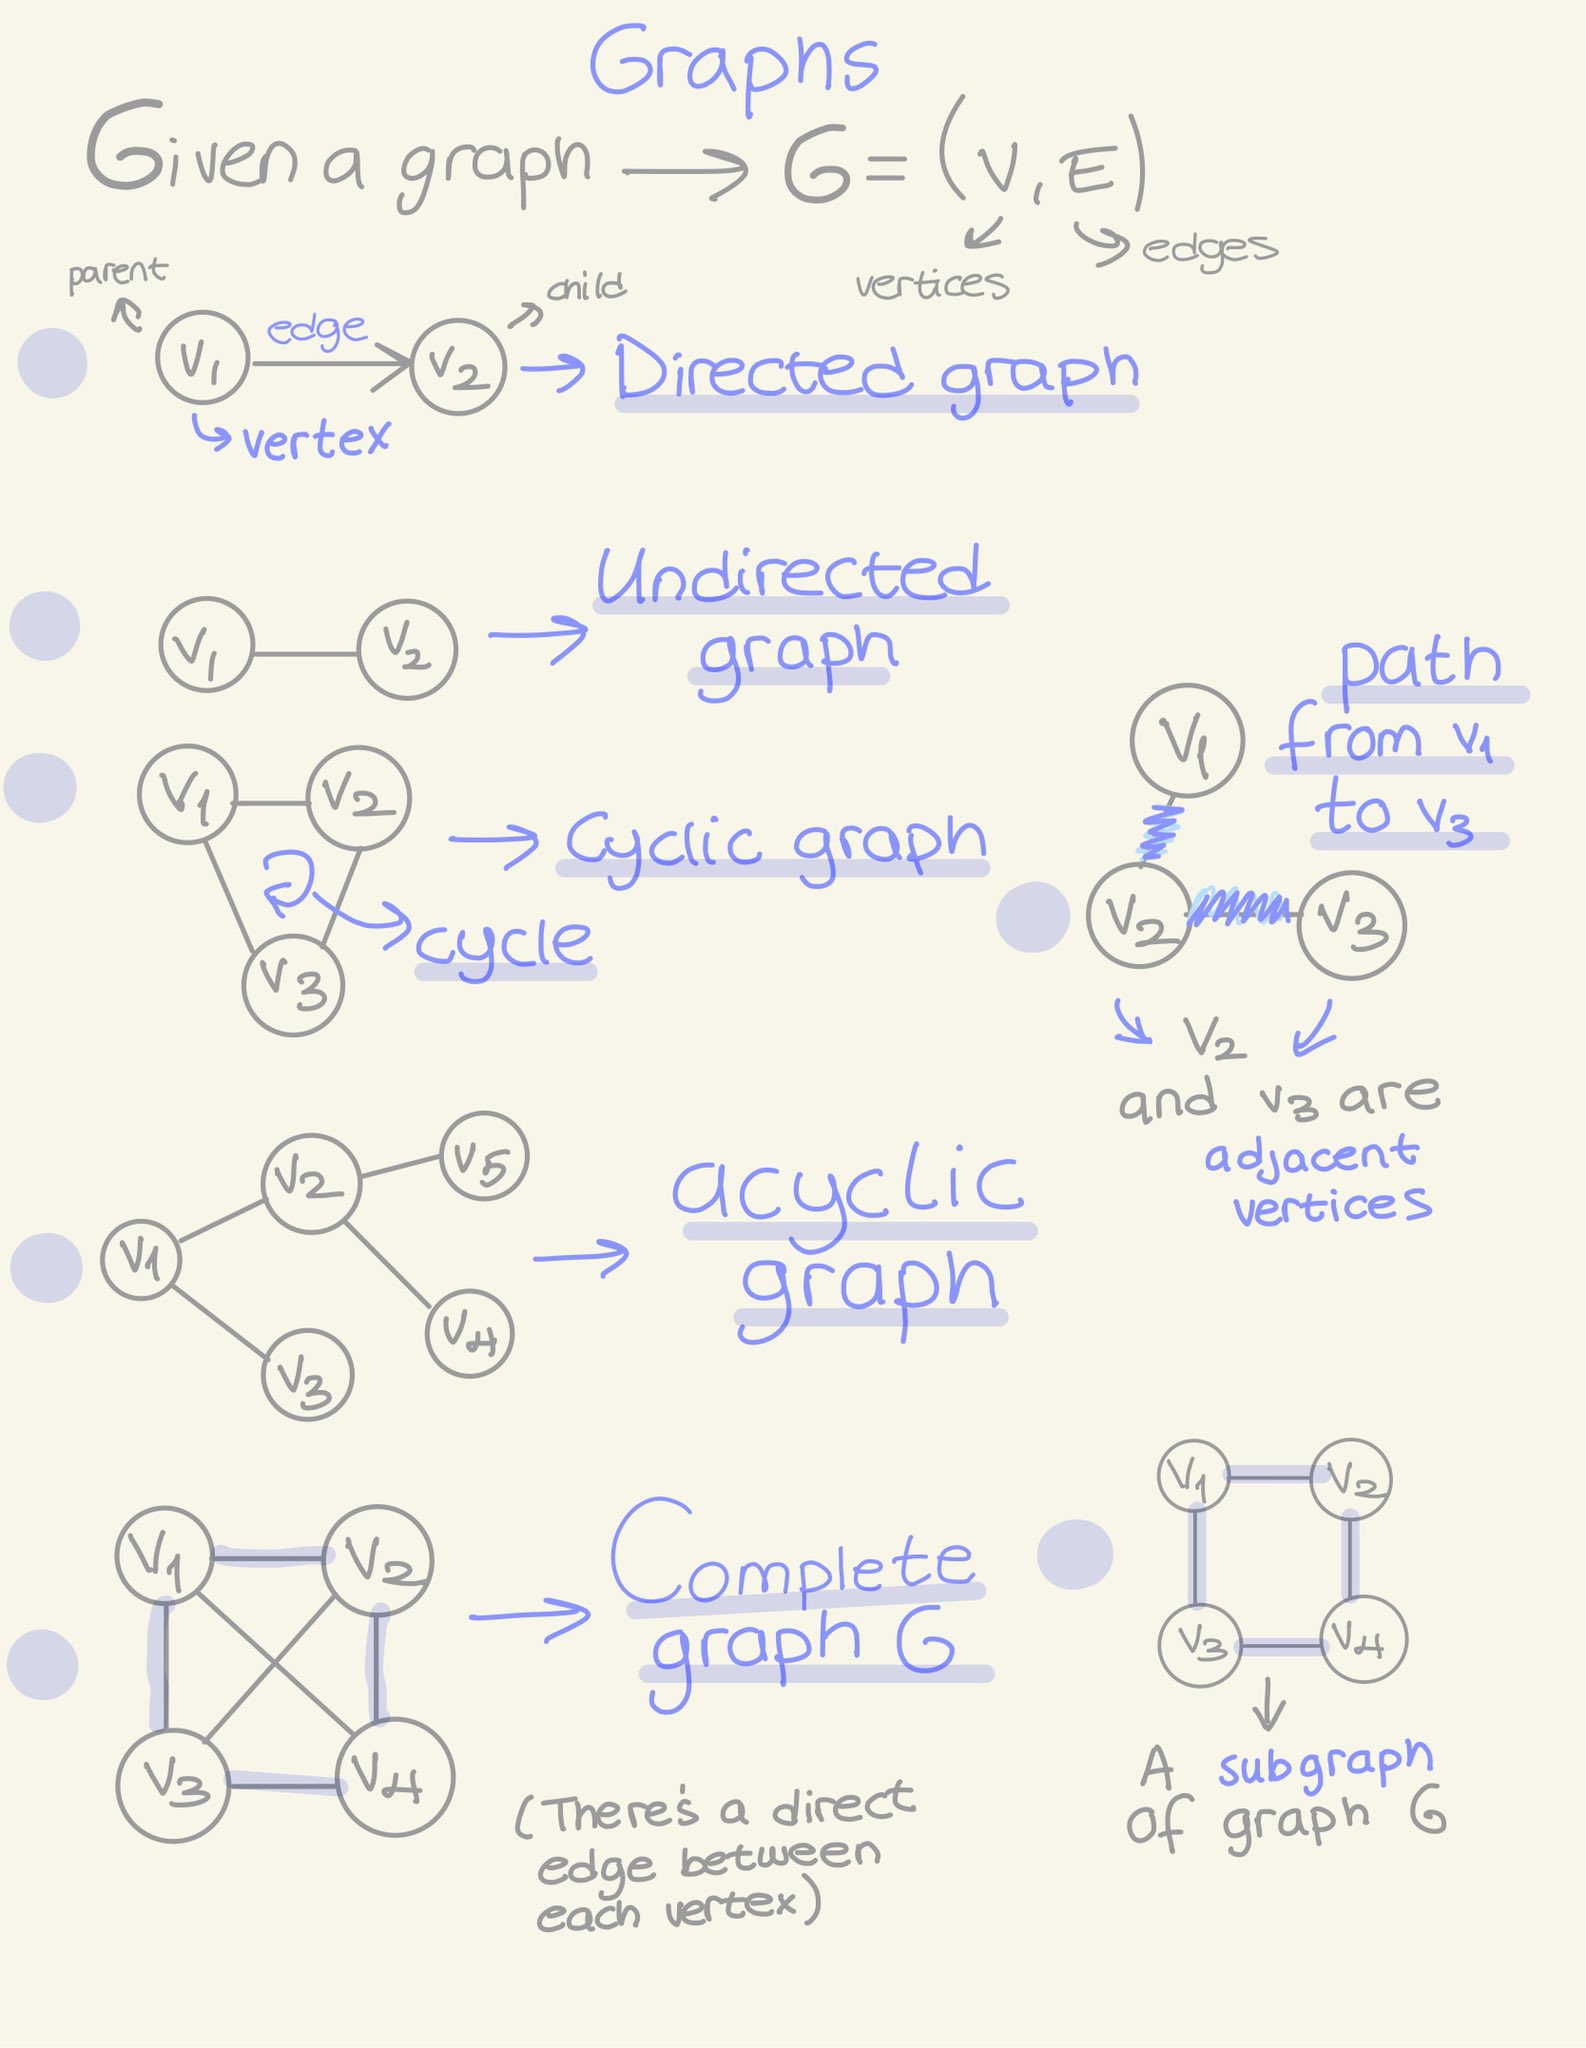 Graphs
Given a graph → G = (V, E)
vertices
edges
parent
child
V1
edge
V2
→ Directed graph
vertex
V1
V2
→ Undirected
graph
V1
V2
→ Cyclic graph
V3
cycle
V1
path
from v1
to v3
V2
V3
V2
and v3 are
adjacent
vertices
V2
V5
V1
V4
V3
→ acyclic
graph
V1
V2
V3
V4
→ Complete
graph G
(There's a direct
edge between
each vertex)
V1
V2
V3
V4
A subgraph
of graph G